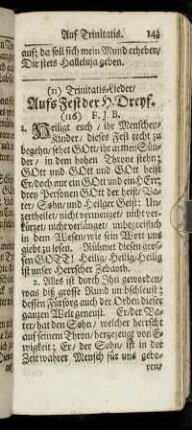 Auf Trinitatis. 143
auf; da soll sich mein Mund erheben/
Dir stets Halleluja geben.
(11) Trinitatis-Lieder/
Aufs Fest der H. Dreyf.
(116) F. J. B.
1. Heiligt euch / ihr Menschen-
Kinder / dieses Fest recht zu
begehn / sehet GOtt / ihr armen Sün-
der / in dem hohen Throne stehn;
GOtt und GOtt und GOtt heist
Er / doch nur ein GOtt und ein HErr/
drey Personen GOtt der heist / Va-
ter / Sohn / und Heilger Geist: Un-
zertheilet / nicht vermenget / nicht ver-
kürzet / nicht verlänget / unbegreiflich
in dem Wesen / wie sein Wort uns
giebt zu lesen. Rühmet diesen gros-
sen GOTT! Heilig / Heilig / Heilig
ist unser Herrscher Zebaoth.
2. Alles ist durch Ihn geworden/
was diß grosse Rund umbschleust;
dessen Fürsorg auch der Orden dieser
ganzen Welt geneust. Er / der Va-
ter / hat den Sohn / welcher herrscht
auf seinem Thron / herzezeugt von E-
wigkeit; Er / der Sohn / ist in der
Zeit wahrer Mensch für uns gebo-
ren/